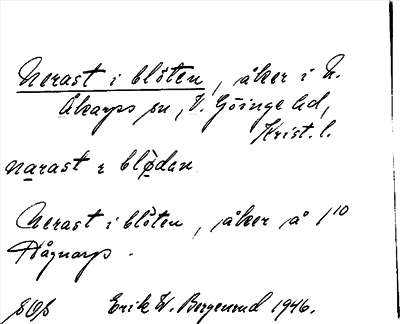 Nerast i blöten, åker i N.
Åkarps sn, V. Göinge hd,
Krist. l.
narast i blødan
Nerast i blöten, åker å 1¹⁰
Hågnarp.
Erik W. Bergenrud 1946.